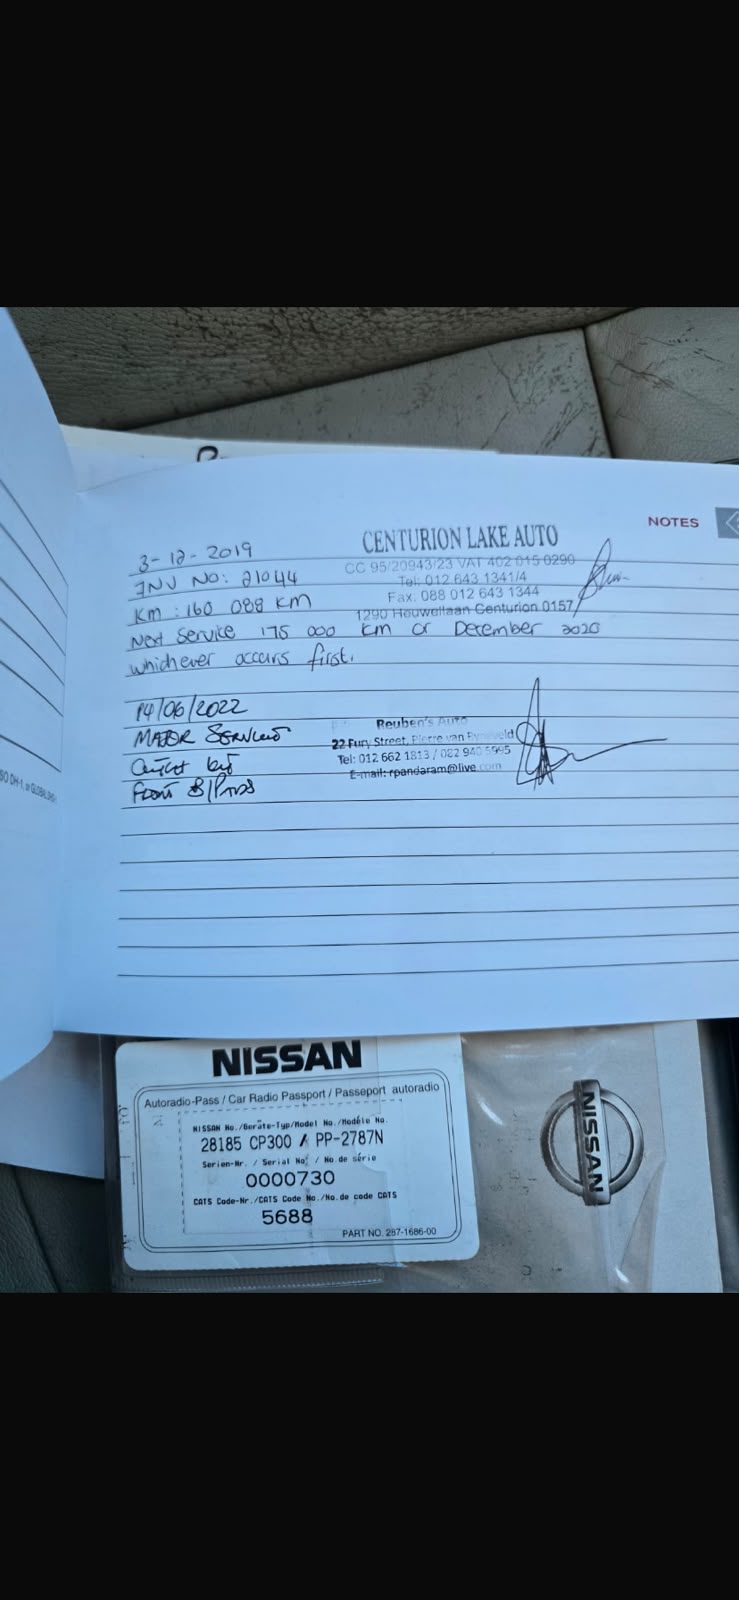 NOTES
3-12-2019
CENTURION LAKE AUTO
CC 95/20943/23 VAT 402 015 0290
INV NO: 21044
Tel: 012 643 1341/4
Fax: 088 012 643 1344
Km : 160 088 KM
1290 Heuwellaan Centurion 0157
Next Service 175 000 km or December 2020
whichever occurs first.
14/06/2022
Reuben's Auto
MAJOR SERVICE
22 Fury Street, Pierre van Ryneveld
Tel: 012 662 1813 / 082 940 5995
E-mail: rpandaram@live.com
FRONT B/PADS
NISSAN
Autoradio-Pass / Car Radio Passport / Passeport autoradio
NISSAN No./Geräte-Typ/Model No./Modèle No.
28185 CP300 / PP-2787N
Serien-Nr. / Serial No. / No.de série
0000730
CATS Code-Nr./CATS Code No./No.de code CATS
5688
PART NO. 287-1686-00
NISSAN